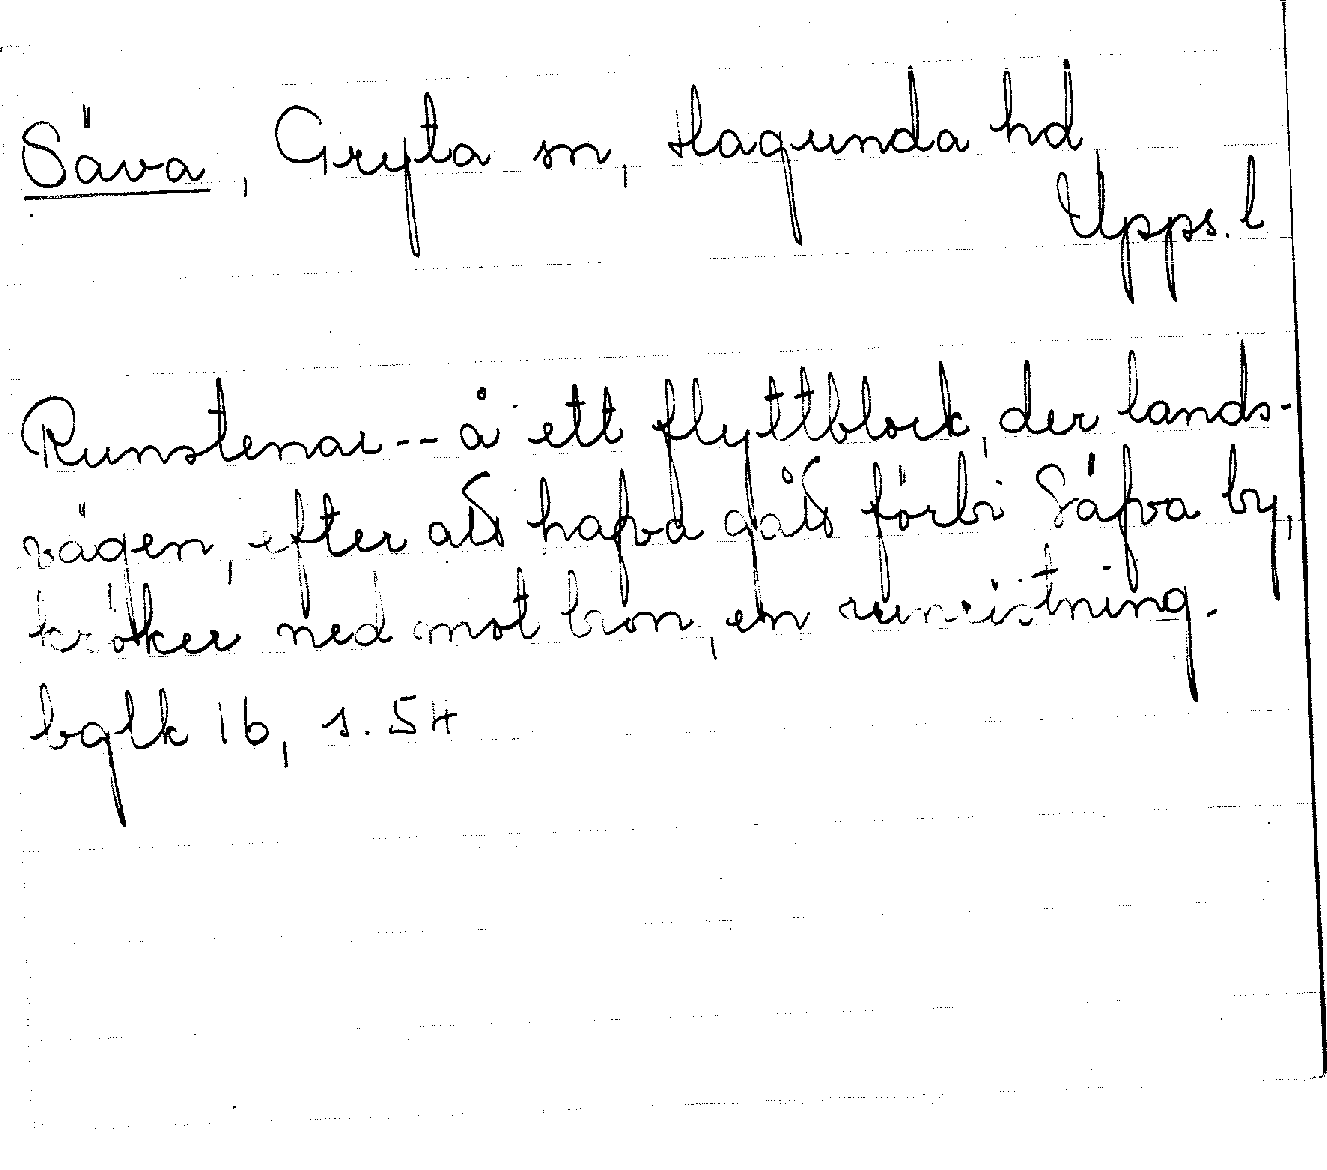 Säva, Gryta sn, Hagunda hd,
Upps. l
Runstenar -- å ett flyttblock, der lands-
vägen, efter att hafva gått förbi Säfva by,
kröker ned mot bron, en runristning.
bglk 1b, s. 54